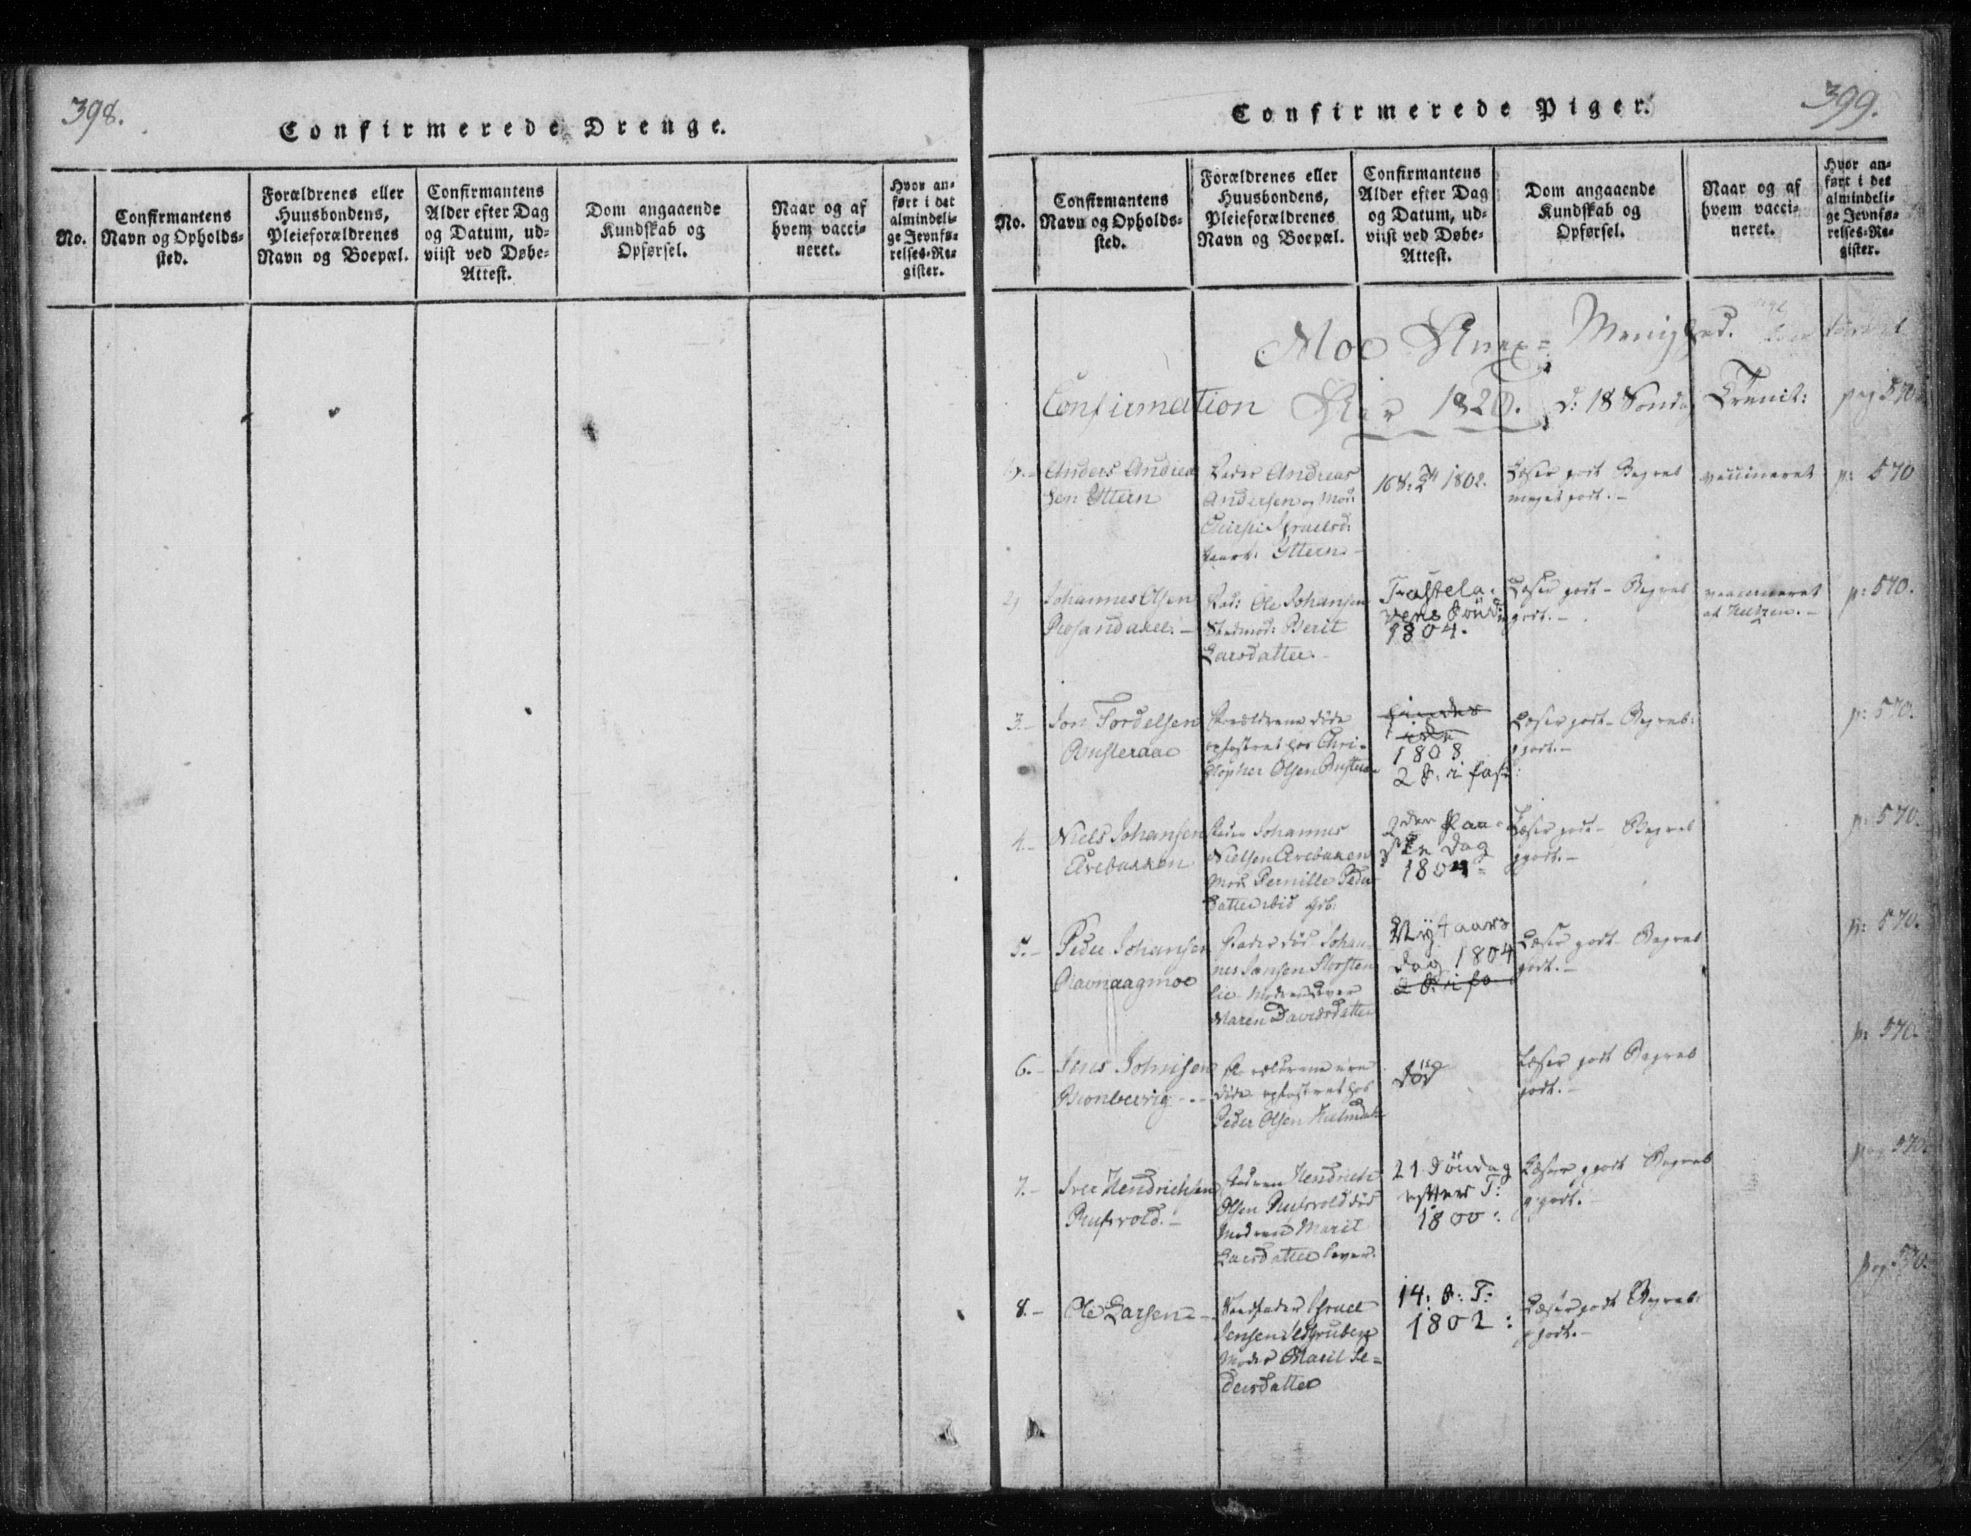 398.
Confirmerede Drenge.
No.
Confirmantens
Navn og Opholds-
sted.
Forældrenes eller
Huusbondens,
Pleieforældrenes
Navn og Boepæl.
Confirmantens
Alder efter Dag
og Datum, ud-
viist ved Døbe-
Attest.
Dom angaaende
Kundskab og
Opførsel.
Naar og af
hvem vacci-
neret.
Hvor an-
ført i det
almindeli-
ge Jevnfø-
relses-Re-
gister.
399.
Confirmerede Piger.
No.
Confirmantens
Navn og Opholds-
sted.
Forældrenes eller
Huusbondens,
Pleieforældrenes
Navn og Boepæl.
Confirmantens
Alder efter Dag
og Datum, ud-
viist ved Døbe-
Attest.
Dom angaaende
Kundskab og
Opførsel.
Naar og af
hvem vacci-
neret.
Hvor an-
ført i det
almindeli-
ge Jevnfø-
relses-Re-
gister.
Moe Anex= Menighed.
Confirmation Aar 1820. d: 18 Sondag Trenit: pag 570
Anders Andrea
sen Yttern
Fader Andreas
Andersen og Mod:
Israelsd:
Yttern
1802.
Læser godt Begreb
meget godt.-
vaccineret
p: 570
2,
Johannes Olsen
Røsandaxel.-
Fad: Ole Johansen
Stedmod: Berit
Larsdatter.-
Fastela-
vens Sönd:
1804.
Læser godt - Begreb
godt.-
vaccineret
af
p: 570.
3.-
Jon Tordelsen
Busteraae
Forældrene döde
opfostret hos Chri-
stopher Olsen
findes
1808
2 S: i fast:
Læser godt - Begreb:
godt.-
p: 570.
4.-
Niels Johansen
Arebakken
Fader Johannes
Nielsen Arebaken
Mod: Pernille Peder
datter
2den Paa-
ske Dag
1804-
Læser godt - Begreb
godt.-
p: 570.
5.-
Peder Johansen
Ravnaagmoe
Fader död Johan-
nes Jansen Storsten
lie Moder Lever
Maren Davidsdatter
Nytaars
dag 1804
2 S: i fa
Læser godt - Begreb
godt.-
p: 570.
6.-
Jens Johnsen
Bionbervig -.-
Forældrene ere
döde opfostret hos
Peder Olsen
död
Læser godt Begreb
godt.-
p: 570.
7.-
Iver Hendrichsen
Rufsvold.-
Faderen Hendrich
Olsen Rufsvold död
Moderen Marit
Larsdatter lever.
21 Söndag
efter T:
1800:
Læser godt Begreb
godt.
pag 570.
8.-
Ole Larsen -
Stedfader Israel
Jensen
Moder Marit Pe-
dersdatter
14: S: T:
1802:
Læser godt Begreb:
godt.-
pag 570.